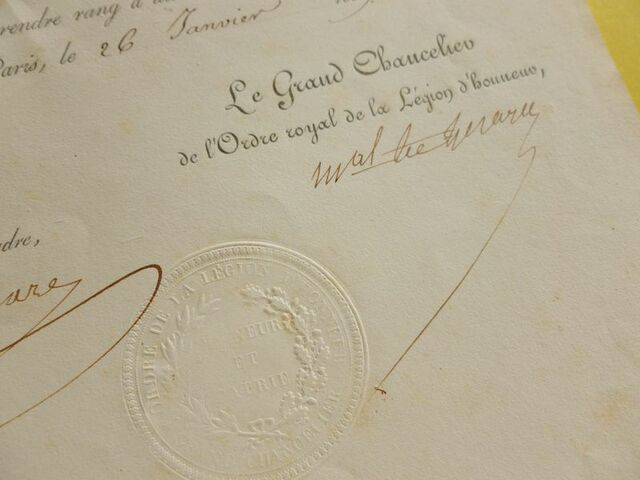 rendre rang à
Paris, le 26 Janvier
Le Grand Chancelier
de l'Ordre royal de la Légion d'honneur,
mal
ORDRE DE LA LÉGION D'HONNEUR
HONNEUR
ET
PATRIE
GRANDE CHANCELLERIE